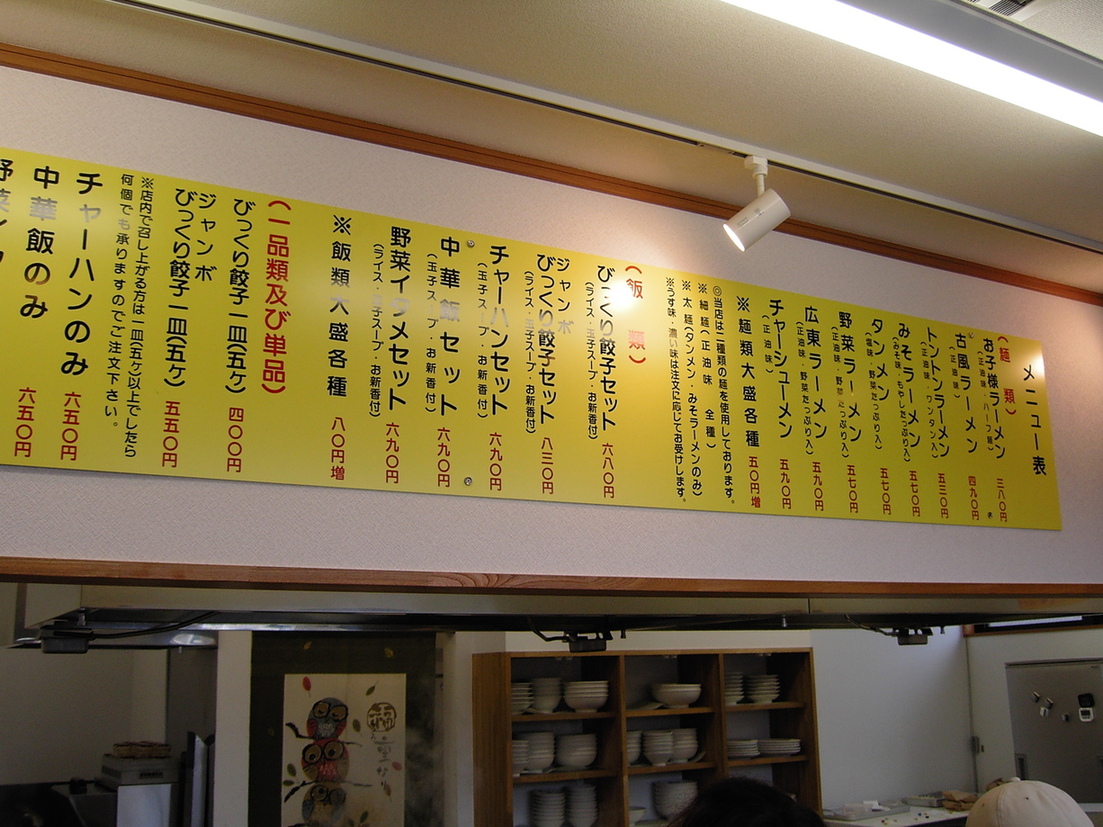 メニュー表
（麺類）
お子様ラーメン 三八〇円
（正油味・ハーフ麺）
古風ラーメン 四九〇円
（正油味）
トントンラーメン 五三〇円
（正油味・ワンタン入）
みそラーメン 五七〇円
（みそ味・もやしたっぷり入）
タンメン 五七〇円
（塩味・野菜たっぷり入）
野菜ラーメン 五七〇円
（正油味・野菜たっぷり入）
広東ラーメン 五九〇円
（正油味・野菜たっぷり入）
チャーシューメン 五九〇円
（正油味）
※麺類大盛各種 五〇円増
◎当店は二種類の麺を使用しております。
※細麺（正油味 全種）
※太麺（タンメン・みそラーメンのみ）
※うす味・濃い味は注文に応じてお受けします。
（飯類）
びっくり餃子セット 六八〇円
（ライス・玉子スープ・お新香付）
ジャンボ
びっくり餃子セット 八三〇円
（ライス・玉子スープ・お新香付）
チャーハンセット 六九〇円
（玉子スープ・お新香付）
中華飯セット 六九〇円
（玉子スープ・お新香付）
野菜イタメセット 六九〇円
（ライス・玉子スープ・お新香付）
※飯類大盛各種 八〇円増
（一品類及び単品）
びっくり餃子一皿（五ヶ） 四〇〇円
ジャンボ
びっくり餃子一皿（五ヶ） 五五〇円
※店内で召し上がる方は一皿（五ヶ以上でしたら
何個でも承りますのでご注文下さい。
チャーハンのみ 六五〇円
中華飯のみ 六五〇円
野菜
福